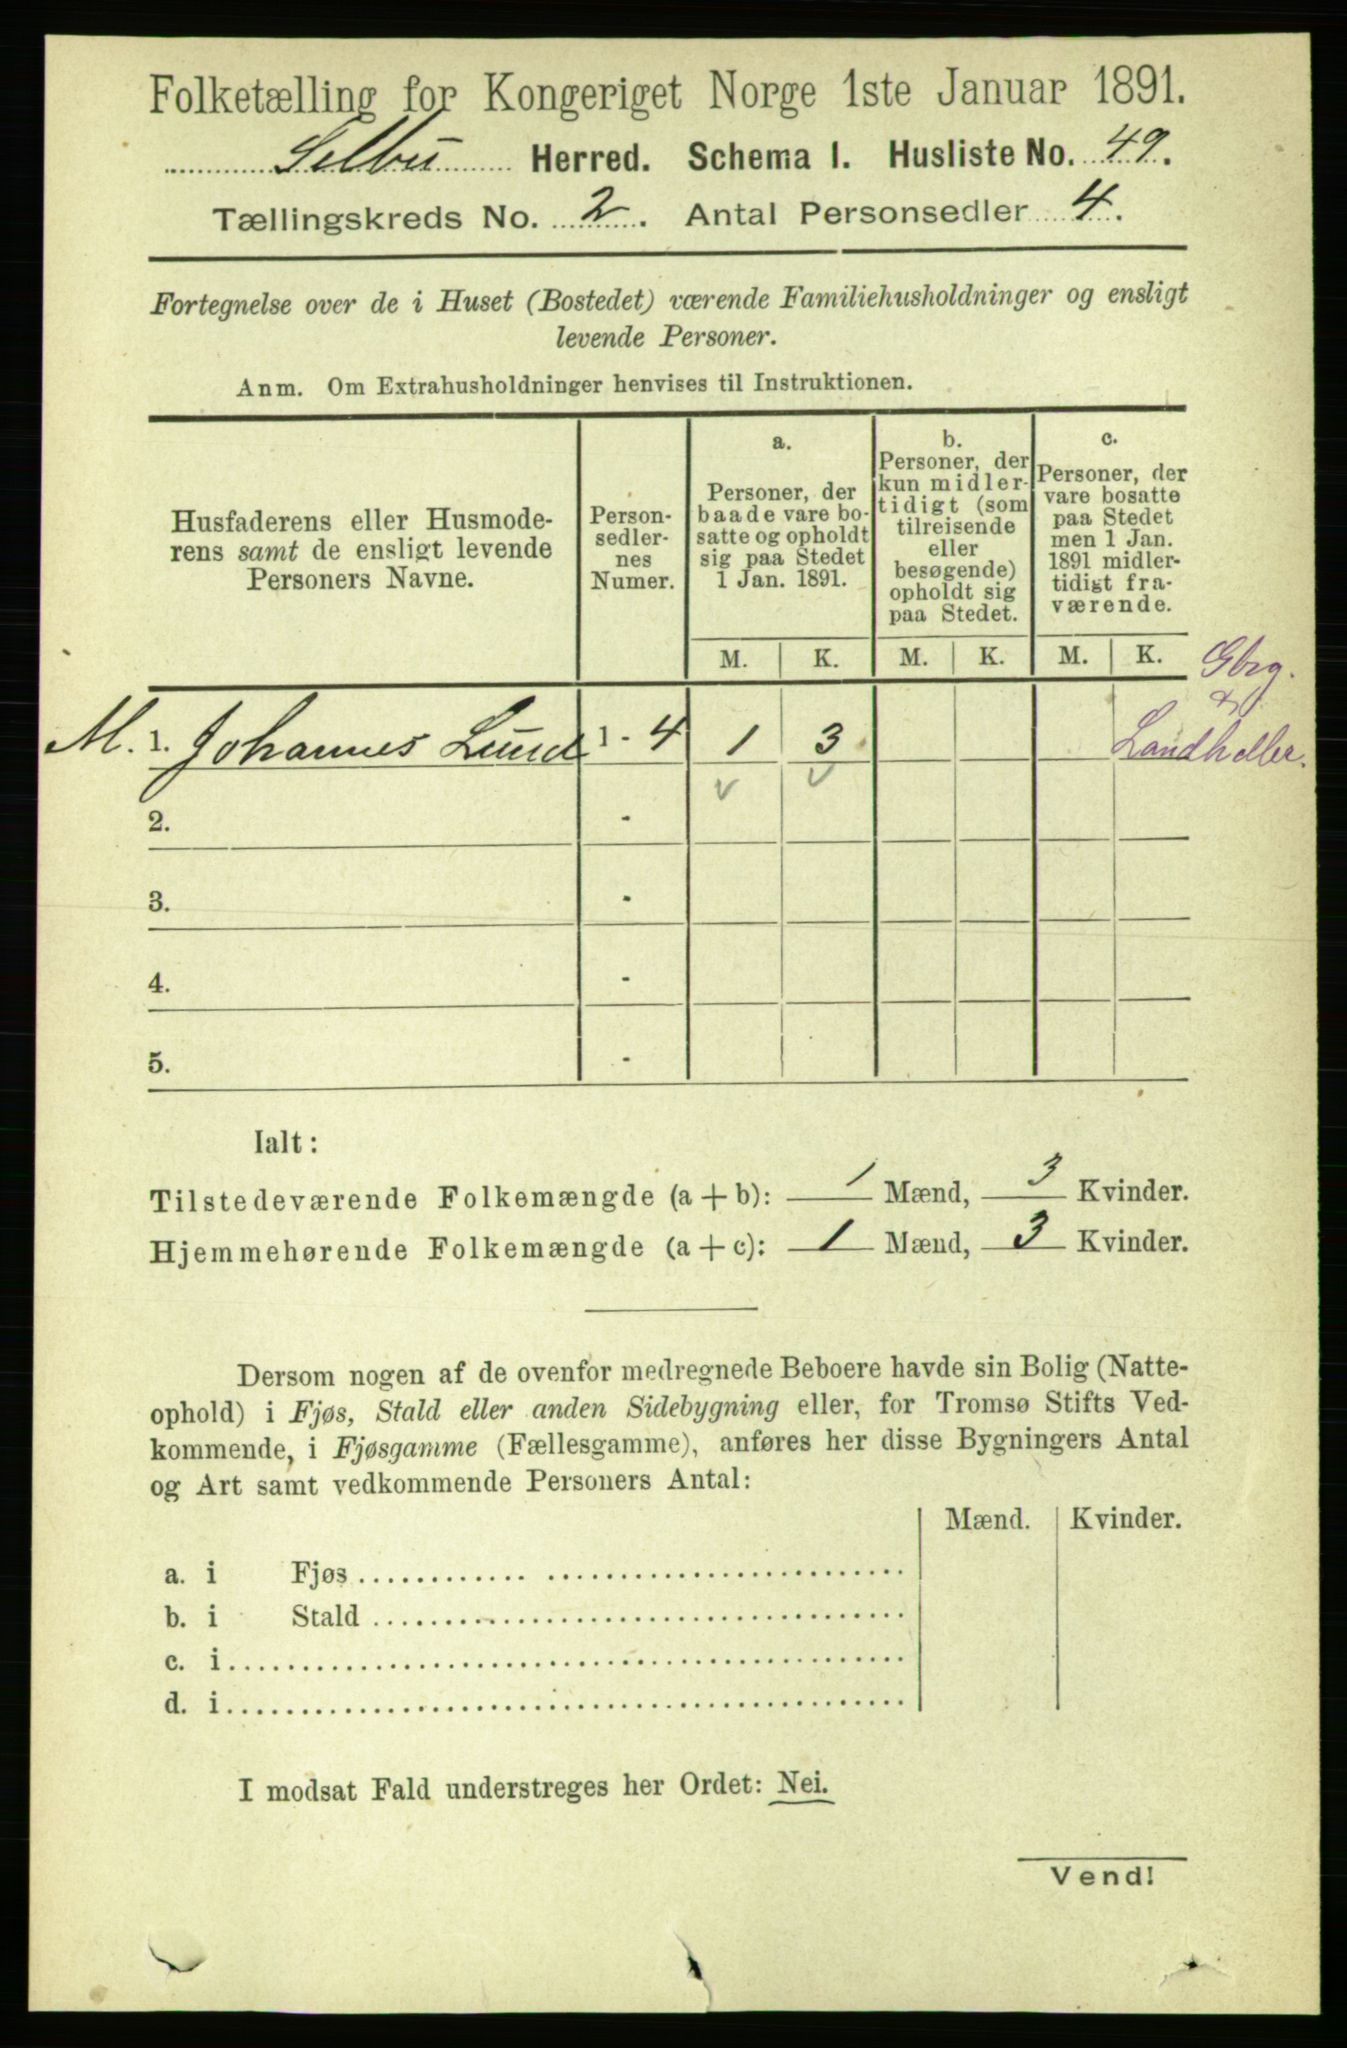 Folketælling for Kongeriget Norge 1ste Januar 1891.
Selbu Herred. Schema 1. Husliste No. 49.
Tællingskreds No. 2. Antal Personsedler 4.
Fortegnelse over de i Huset (Bostedet) værende Familiehusholdninger og ensligt
levende Personer.
Anm. Om Extrahusholdninger henvises til Instruktionen.
Husfaderens eller Husmode-
rens samt de ensligt levende
Personers Navne.
Person-
sedler-
nes
Numer.
a.
Personer, der
baade vare bo-
satte og opholdt
sig paa Stedet
1 Jan. 1891.
b.
Personer, der
kun midler-
tidigt (som
tilreisende
eller
besøgende)
opholdt sig
paa Stedet.
c.
Personer, der
vare bosatte
paa Stedet
men 1 Jan.
1891 midler-
tidigt fra-
værende.
M. K. M. K. M. K.
Gbrg.
&
M. 1. Johannes Lund 1 - 4 1 3 Landhdler.
2. -
3. -
4. -
5. -
Ialt:
Tilstedeværende Folkemængde (a + b): 1 Mænd, 3 Kvinder.
Hjemmehørende Folkemængde (a + c): 1 Mænd, 3 Kvinder.
Dersom nogen af de ovenfor medregnede Beboere havde sin Bolig (Natte-
ophold) i Fjøs, Stald eller anden Sidebygning eller, for Tromsø Stifts Ved-
kommende, i Fjøsgamme (Fællesgamme), anføres her disse Bygningers Antal
og Art samt vedkommende Personers Antal:
Mænd. Kvinder.
a. i Fjøs
b. i Stald
c. i
d. i
I modsat Fald understreges her Ordet: Nei.
Vend!